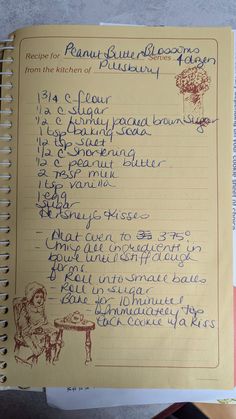 Recipe for Peanut Butter Blossoms
Serves 4 dozen
from the kitchen of Pillsbury
1 3/4 c flour
1/2 c sugar
1/2 c firmly packed brown sugar
1 tsp baking soda
1/2 tsp salt
1/2 c shortening
1/2 c peanut butter
2 TBSP milk
1 tsp vanilla
1 egg
Sugar
Hershey's Kisses
- Heat oven to 375°.
- Mix all ingredients in
bowl until stiff dough
forms
- Roll into small balls
- Roll in sugar
- Bake for 10 minutes
- Immediately top
each cookie w/a kiss